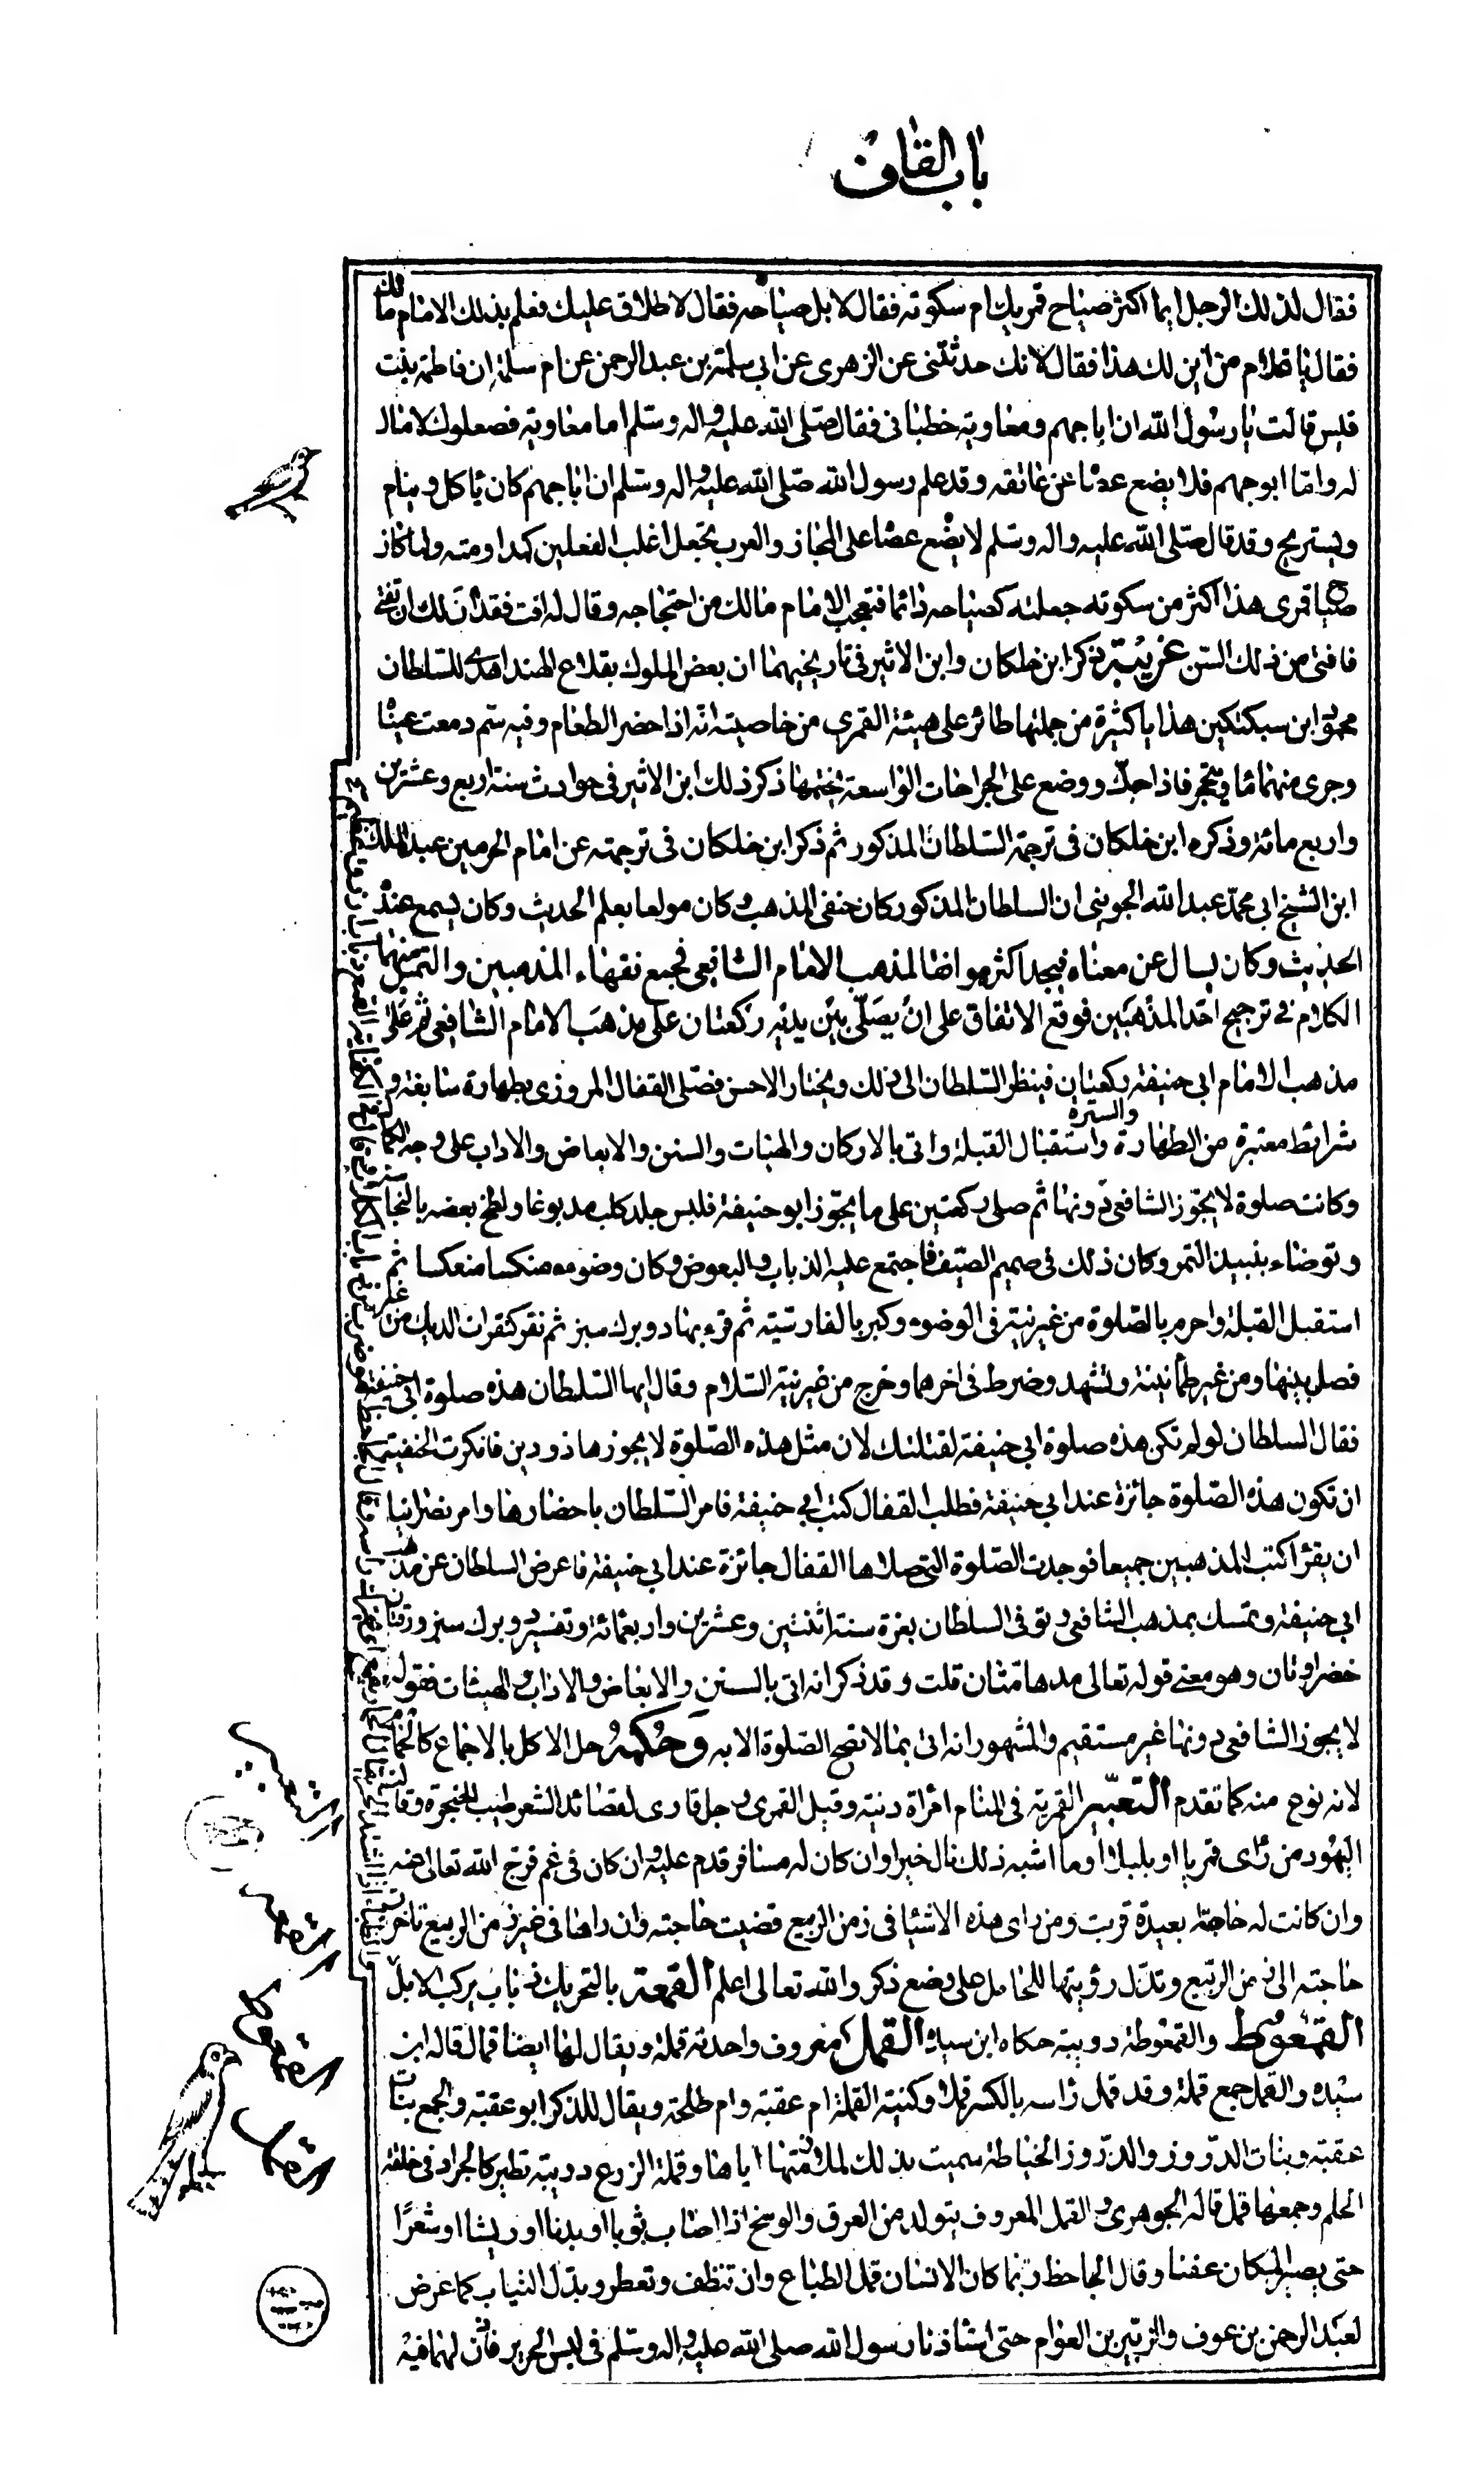 باب القاف
فقال لذلك الرجل ايما اكثر صياح قمريك ام سكوته فقال لا بل صياحه فقال لا طلاق عليك فعلم بذلك الامام مالك
فقال يا غلام من اين لك هذا فقال لانك حدثتني عن الزهرى عن ابى سلمة بن عبد الرحمن عن ام سلمة ان فاطمة بنت
قيس قالت يا رسول الله ان ابا جهم ومعاوية خطبانى فقال صلى الله عليه واله وسلم اما معاوية فصعلوك لا مال
له واما ابو جهم فلا يضع عصا عن عاتقه وقد علم رسول الله صلى الله عليه واله وسلم ان ابا جهم كان يأكل وينام
ويستريح وقد قال صلى الله عليه واله وسلم لا يضع عصا على المجاز والعرب تجعل اغلب الفعلين كمداومته ولما كان
صياح قمرى هذا اكثر من سكوته جعلته كصياحه دائما فتعجب الامام مالك من احتجاجه وقال له افت فقد آن لك ان تفتى
فافتى من ذلك السن غريبة ذكر ابن خلكان وابن الاثير فى تاريخيهما ان بعض الملوك بقلاع الهند اهدى للسلطان
محمود ابن سبكتكين هدايا كثيرة من جملتها طائر على هيئة القمرى من خاصيته انه اذا حضر الطعام وفيه سم دمعت عيناه
وجرى منهما ماء وتحجر فاذا حك ووضع على الجراحات الواسعة ختمها ذكر ذلك ابن الاثير فى حوادث سنة اربع وعشرين
واربع مائة وذكره ابن خلكان فى ترجمة السلطان المذكور ثم ذكر ابن خلكان فى ترجمته عن امام الحرمين عبد الملك
ابن الشيخ ابى محمد عبد الله الجوينى ان السلطان المذكور كان حنفى المذهب وكان مولعا بعلم الحديث وكان يسمع عنده
الحديث وكان يسال عن معناه فيجد اكثره موافقا لمذهب الامام الشافعى فجمع فقهاء المذهبين والتمس منهما
الكلام فى ترجيح احد المذهبين فوقع الاتفاق على ان يصلى بين يديه ركعتان على مذهب الامام الشافعى ثم على
مذهب الامام ابى حنيفة ركعتان فينظر السلطان الى ذلك ويختار الاحسن فصلى القفال المروزى بطهارة سابغة و
شرائط معتبرة من الطهارة والسترة واستقبال القبلة واتى بالاركان والهيئات والسنن والابعاض والاداب على وجه الكمال
وكانت صلوة لا يجوز الشافعى دونها ثم صلى ركعتين على ما يجوز ابو حنيفة فلبس جلد كلب مدبوغا ولطخ بعضه بالنجاسة
وتوضاء بنبيذ التمر وكان ذلك فى صميم الصيف فاجتمع عليه الذباب والبعوض وكان وضوءه منكسا منعكسا ثم
استقبل القبلة واحرم بالصلوة من غير نية فى الوضوء وكبر بالفارسية ثم قرء بها دو برك سبز ثم نقر كنقرات الديك من غير
فصل بينها ومن غير طمأنينة وتشهد وضرط فى اخرهما وخرج من غير نية السلام وقال ايها السلطان هذه صلوة ابى حنيفة
فقال السلطان لو لم تكن هذه صلوة ابى حنيفة لقتلتك لان مثل هذه الصلوة لا يجوزها ذو دين فانكرت الحنفية
ان تكون هذه الصلوة جائزة عند ابى حنيفة فطلب القفال كتب ابى حنيفة فامر السلطان باحضارها وامر نصرانيا
ان يقرأ كتب المذهبين جميعا فوجدت الصلوة التى صلاها القفال جائزة عند ابى حنيفة فاعرض السلطان عن مذهب
ابى حنيفة وتمسك بمذهب الشافعى توفى السلطان بغزة سنة اثنتين وعشرين واربعمائة وتفسير دو برك سبز ورقتان
خضراوتان وهو معنى قوله تعالى مدهامتان قلت وقد ذكر انه اتى بالسنن والابعاض والاداب والهيئات فقوله
لا يجوز الشافعى دونها غير مستقيم والمشهور انه اتى بما لا تصح الصلوة الا به وحكمه حل الاكل بالاجماع كالحمام
لانه نوع منه كما تقدم التعبير القمرية فى المنام امراة دينة وقيل القمرى رجل قارى لقصائد الشعر طيب الحنجرة وقالت
اليهود من رأى قمريا او بلبلا او ما اشبه ذلك نال خيرا وان كان له مسافر قدم عليه وان كان فى غم فرج الله تعالى همه
وان كانت له حاجة بعيدة قربت ومن رأى هذه الاشياء فى زمن الربيع قضيت حاجته وان راها فى غير زمن الربيع تاخرت
حاجته الى زمن الربيع وتدل رؤيتها للحامل على وضع ذكر والله تعالى اعلم القمعة بالتحريك ذباب يركب الابل
القمعوط والقمعوطة دويبة حكاه ابن سيده القمل معروف واحدته قملة ويقال لها ايضا قمال قاله ابن
سيده والقمل جمع قملة وقد قمل رأسه بالكسر قملا وكنية القملة ام عقبة وام طلحة ويقال للذكر ابو عقبة والجمع بنات
عقبة وبنات الدروز والدروز الخياطة سميت بذلك لملازمتها اياها وقملة الزرع دويبة تطير كالجراد فى خلقة
الحلم وجمعها قمل قاله الجوهرى والقمل المعروف يتولد من العرق والوسخ اذا اصاب ثوبا او بدنا او ريشا او شعرا
حتى يصير المكان عفنا وقال الجاحظ ربما كان الانسان قمل الطباع وان تنظف وتعطر وبدل الثياب كما عرض
لعبد الرحمن بن عوف والزبير بن العوام حتى استاذنا رسول الله صلى الله عليه واله وسلم فى لبس الحرير فاذن لهما فيه
القمعة
القمعوط
القمل